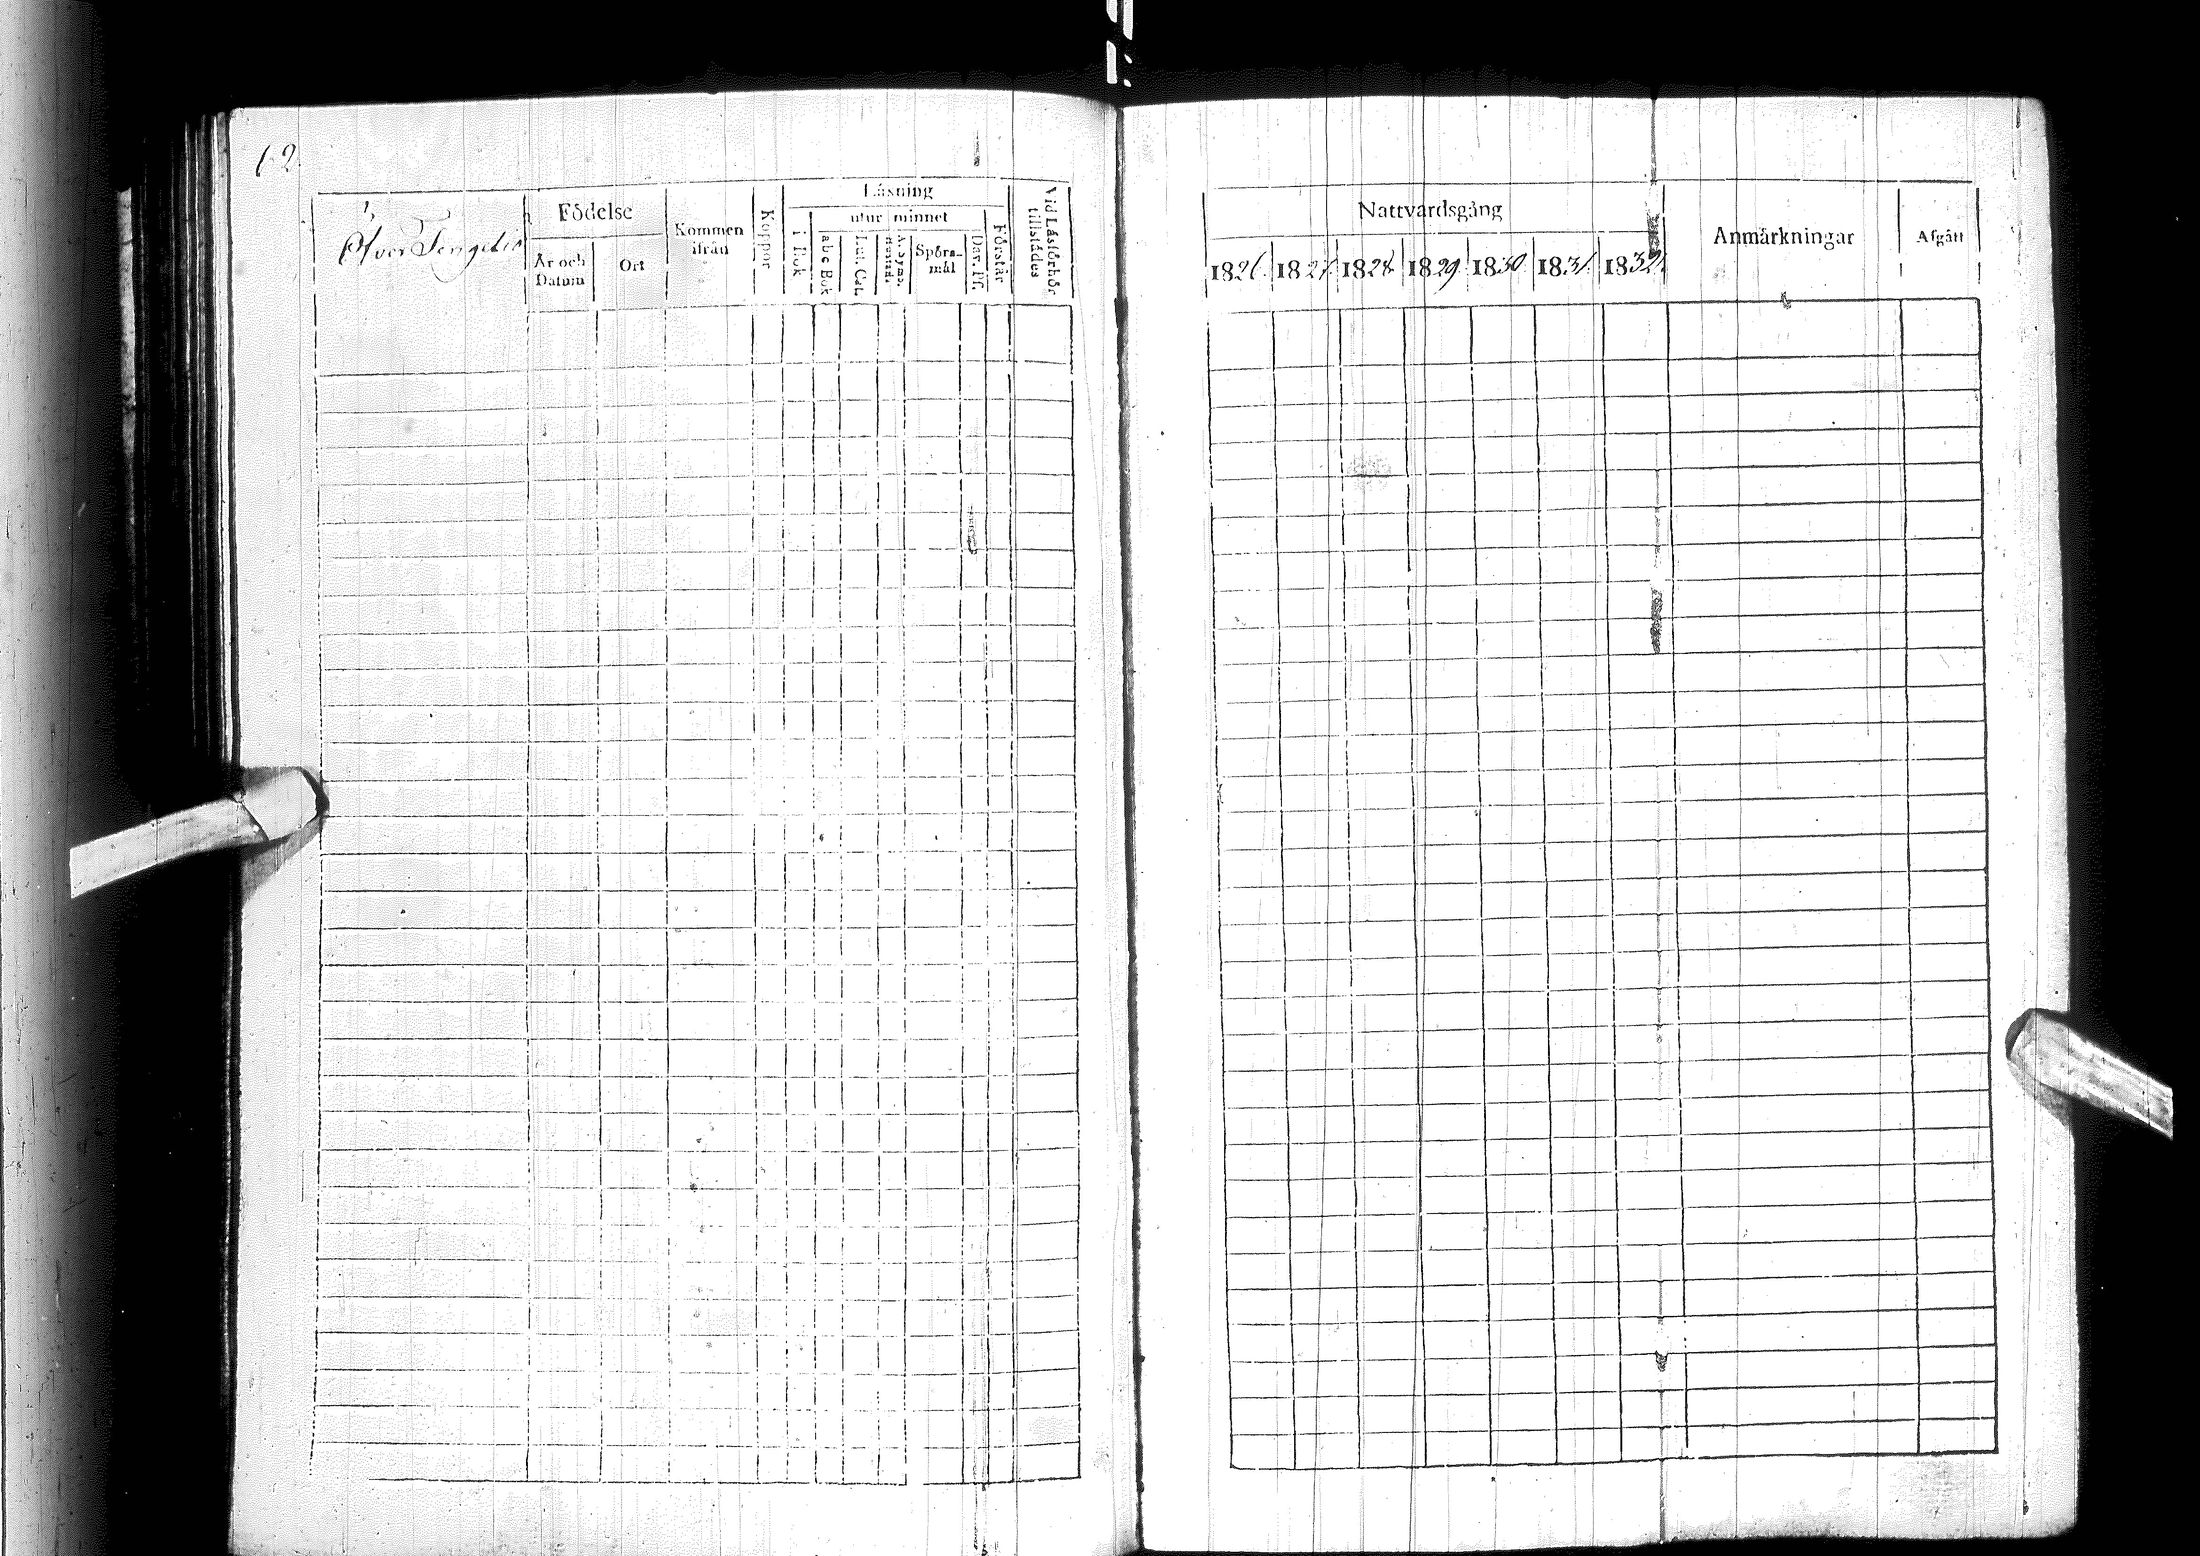 12
Öfver Tengelis
Födelse
År och Datum
Ort
Kommen ifrån
Koppor
Läsning
i Bok
utur minnet
abc Bok
Lut. Cat.
Spörs-mål
Dav. Ps.
Förstår
Vid Läsförhör tillstädes
Nattvardsgång
1826. 1827. 1828. 1829. 1830. 1831. 1832.
Anmärkningar
Afgått